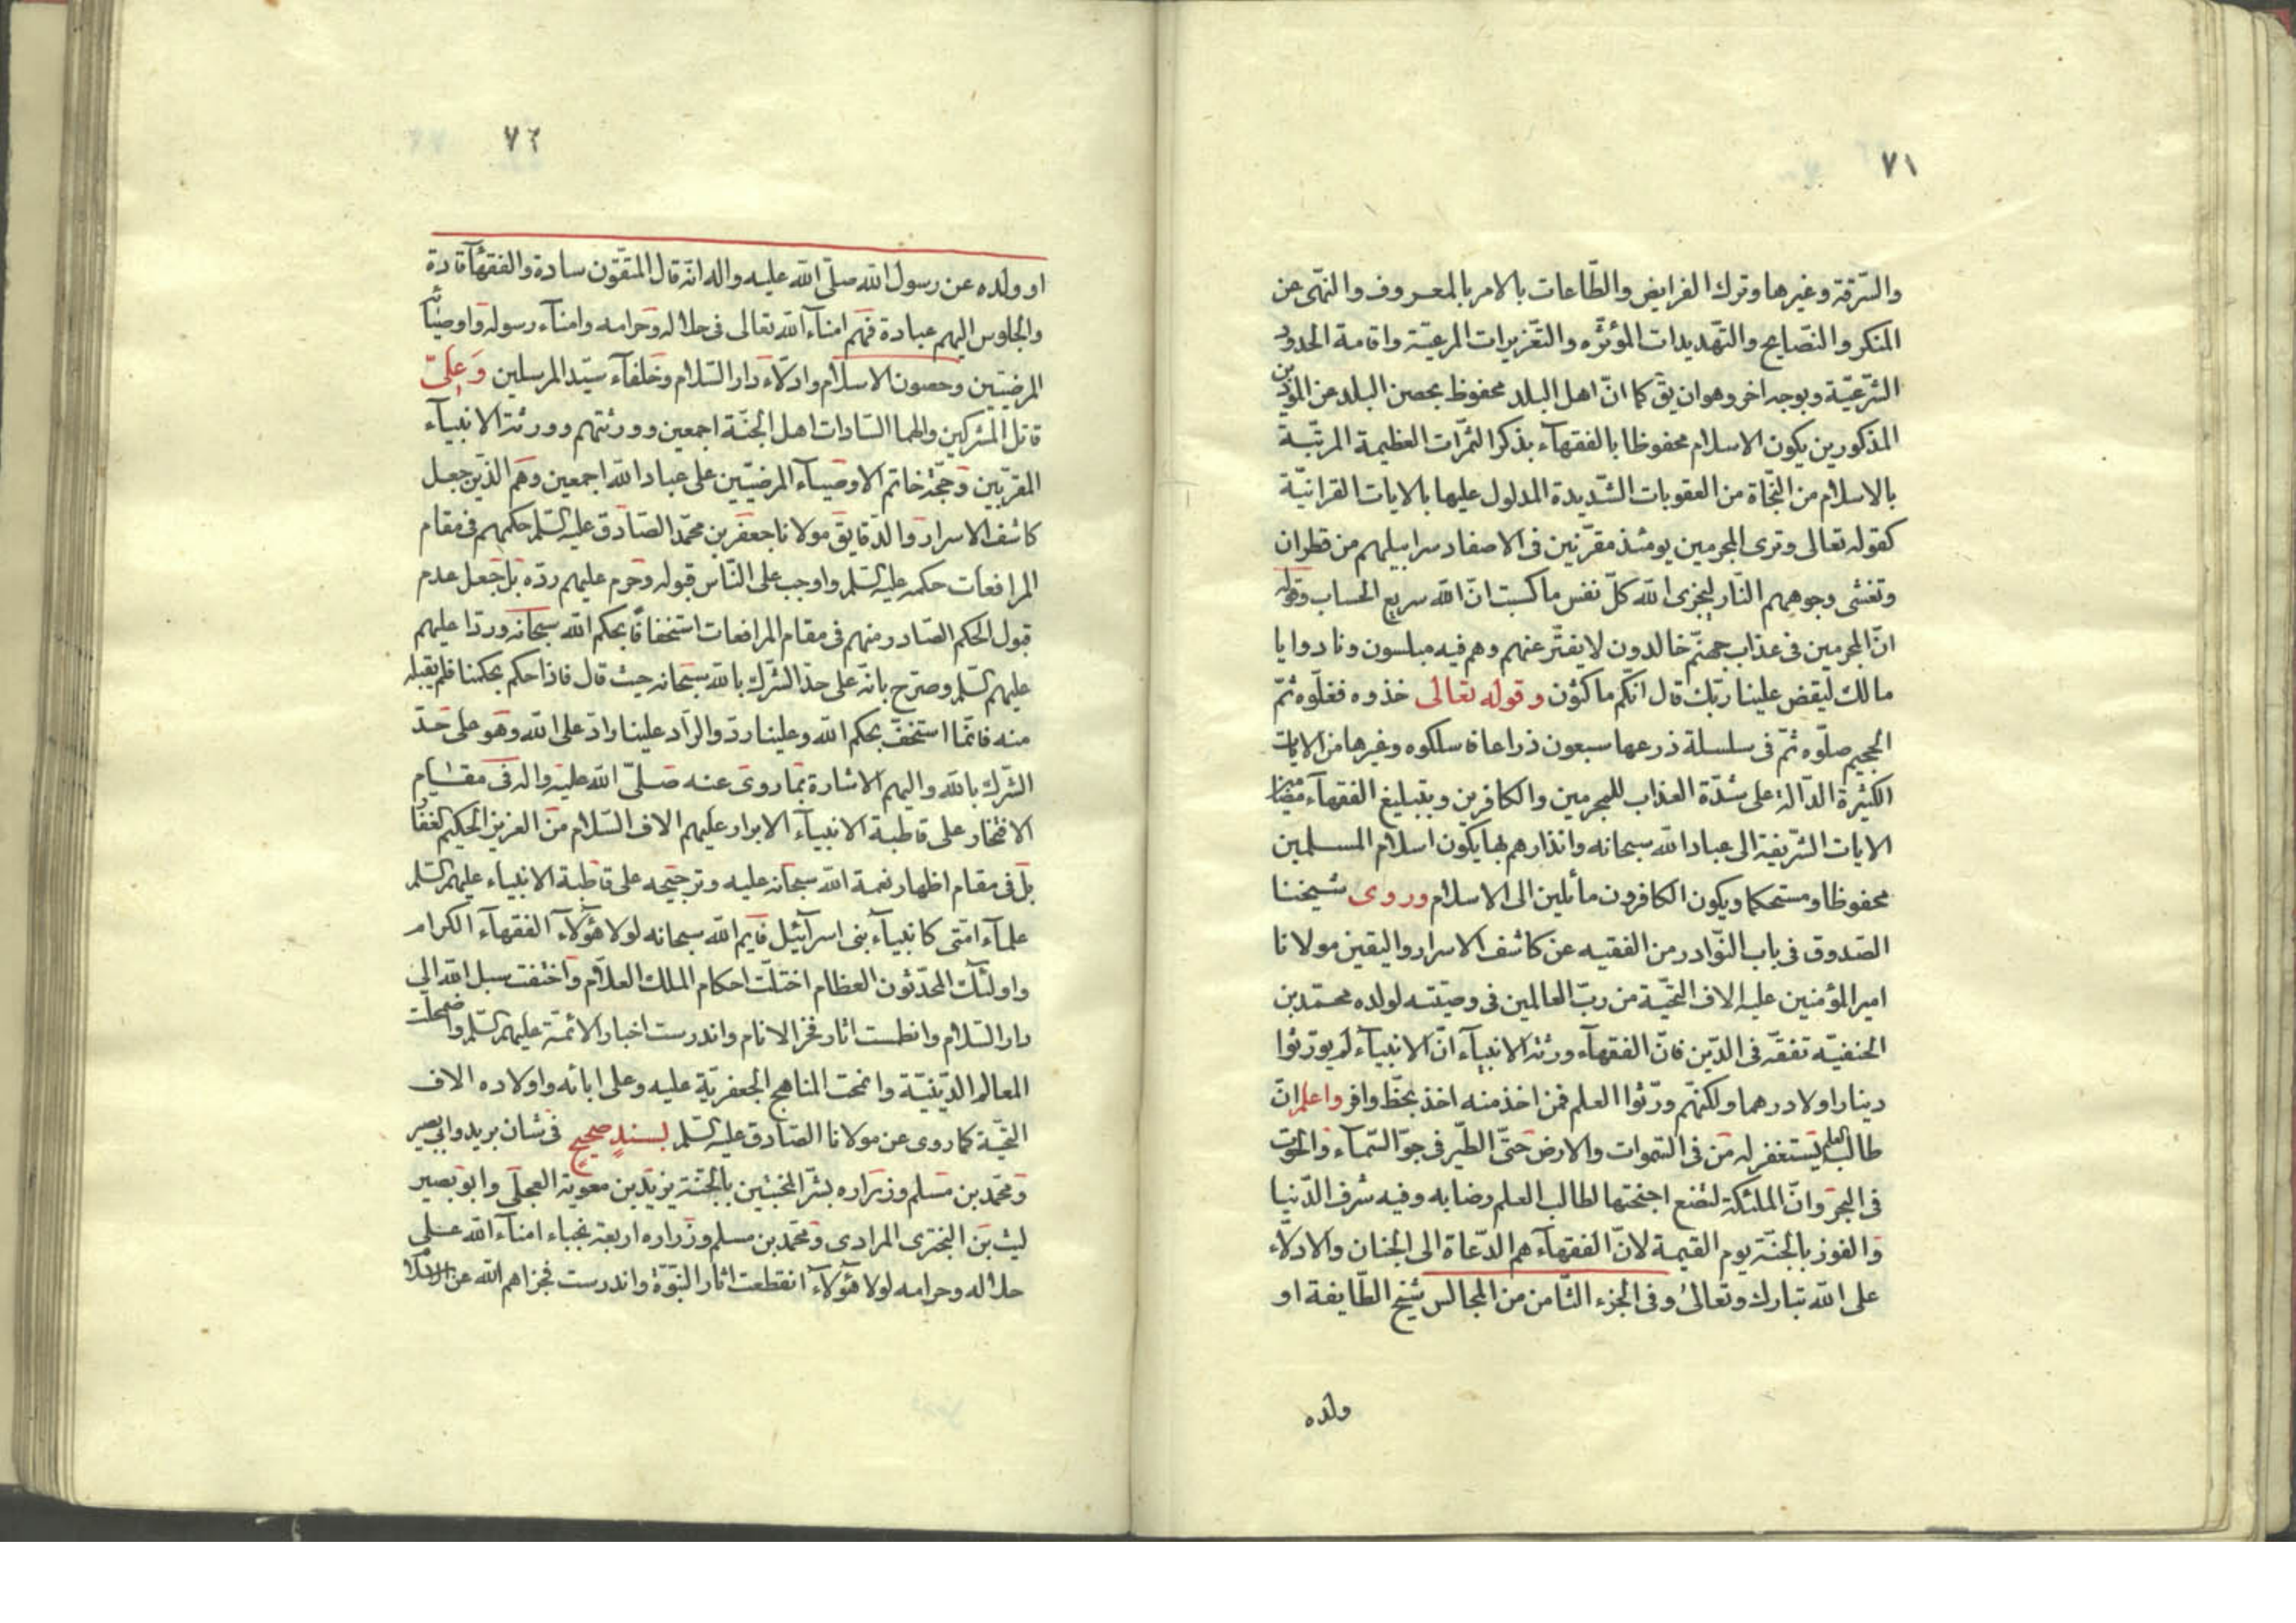 ٧١
والسّرقة وغيرها وترك الفرايض والطّاعات بالامر بالمعروف والنّهى عن
المنكر والنّصايح والتّهديدات المؤثّره والتّغزيرات المرعيّة واقامة الحدود
الشّرعيّة وبوجه اخر وهو ان يق كما انّ اهل البلد محفوظ بحصن البلد عن الموذين
المذكورين يكون الاسلام محفوظا بالفقهآء بذكر الثمّرات العظيمة المرتّبة
بالاسلام من النّجاة من العقوبات الشّديدة المدلول عليها بالايات القرانيّة
كقوله تعالى وترى المجرمين يومئذ مقرّنين فى الاصفاد سرابيلهم من قطران
وتغشى وجوههم النّار ليجزى الله كلّ نفس ما كسبت انّ الله سريع الحساب وقوله
انّ المجرمين فى عذاب جهنّم خالدون لا يفتّر عنهم وهم فيه مبلسون ونادوا يا
مالك ليقض علينا ربّك قال انّكم ماكثون وقوله تعالى خذوه فغلّوه ثمّ
الجحيم صلّوه ثمّ فى سلسلة ذرعها سبعون ذراعا فاسلكوه وغيرها من الايات
الكثيرة الدّالة على شدّة العذاب للمجرمين والكافرين وبتبليغ الفقهآء
الايات الشّريفة الى عباد الله سبحانه وانذارهم بها يكون اسلام المسلمين
محفوظا ومستحكما ويكون الكافرون مائلين الى الاسلام وروى شيخنا
الصّدوق فى باب النّوادر من الفقيه عن كاشف الاسرار واليقين مولانا
امير المؤمنين عليه الاف التّحيّة من ربّ العالمين فى وصيّته لولده محمّد بن
الحنفيّه تفقّه فى الدّين فانّ الفقهآء ورثة الانبيآء انّ الانبيآء لم يورّثوا
دينارا ولا درهما ولكنّهم ورّثوا العلم فمن اخذ منه اخذ بحظّ وافر واعلم انّ
طالب العلم يستغفر له من فى السّموات والارض حتّى الطّير فى جوّ السّمآء والحوت
فى البحر وانّ الملئكة لتضع اجنحتها لطالب العلم رضا به وفيه شرف الدّنيا
والفوز بالجنّة يوم القيمة لانّ الفقهآء هم الدّعاة الى الجنان والادلّاء
على الله تبارك وتعالى وفى الجزء الثّامن من المجالس شيخ الطّايفة او
ولده
٧٢
او ولده عن رسول الله صلّى الله عليه واله انّه قال المتّقون سادة والفقهآء قادة
والجلوس اليهم عبادة فهم امنآء الله تعالى فى حلاله وحرامه وامنآء رسوله واوصيائه
المرضيّين وحصون الاسلام وادلّاء دار السّلام وخلفآء سيّد المرسلين وعلىّ
قاتل المشركين والهما السّادات اهل الجنّة اجمعين وورثتهم وورثة الانبيآء
المقرّبين وحجّة خاتم الاوصيآء المرضيّين على عباد الله اجمعين وهم الّذين جعل
كاشف الاسرار والدّقايق مولانا جعفر بن محمّد الصّادق عليه السّلم حكمهم فى مقام
المرافعات حكمه عليه السّلم واوجب على النّاس قبوله وحرم عليهم ردّه بل جعل عدم
قبول الحكم الصّادر منهم فى مقام المرافعات استخفافًا بحكم الله سبحانه وردّا عليهم
عليهم السّلم وصرّح بانّه على حدّ الشّرك بالله سبحانه حيث قال فاذا حكم بحكمنا فلم يقبله
منه فانّما استخفّ بحكم الله وعلينا ردّ والرّاد علينا رادّ على الله وهو على حدّ
الشّرك بالله واليهم الاشارة بما روى عنه صلّى الله عليه واله فى مقام
الافتخار على قاطبة الانبيآء الابرار عليهم الاف السّلام من العزيز الحكيم الغفّار
بل فى مقام اظهار نعمة الله سبحانه عليه وترجيحه على قاطبة الانبياء عليهم السّلم
علمآء امّتى كانبيآء بنى اسرآئيل فايم الله سبحانه لولا هؤلآء الفقهآء الكرام
واولئك المحدّثون العظام اختلّت احكام الملك العلّام واختفت سبل الله الى
دار السّلام وانطمست اثار فخر الانام واندرست اخبار الائمّة عليهم السّلم واضمحلت
المعالم الدّينيّة وانمحت المناهج الجعفريّة عليه وعلى ابائه واولاده الاف
التّحيّة كما روى عن مولانا الصّادق عليه السّلم بسندٍ صحيحٍ فى شان بريد وابى بصير
ومحمّد بن مسلم وزراره بشّر المخبتين بالجنّة يزيد بن معوية العجلى وابو بصير
ليث بن البخترى المرادى ومحمد بن مسلم وزراره اربعة نجباء امنآء الله على
حلاله وحرامه لولا هؤلآء انقطعت اثار النبّوّة واندرست فجزاهم الله عن الاسلام